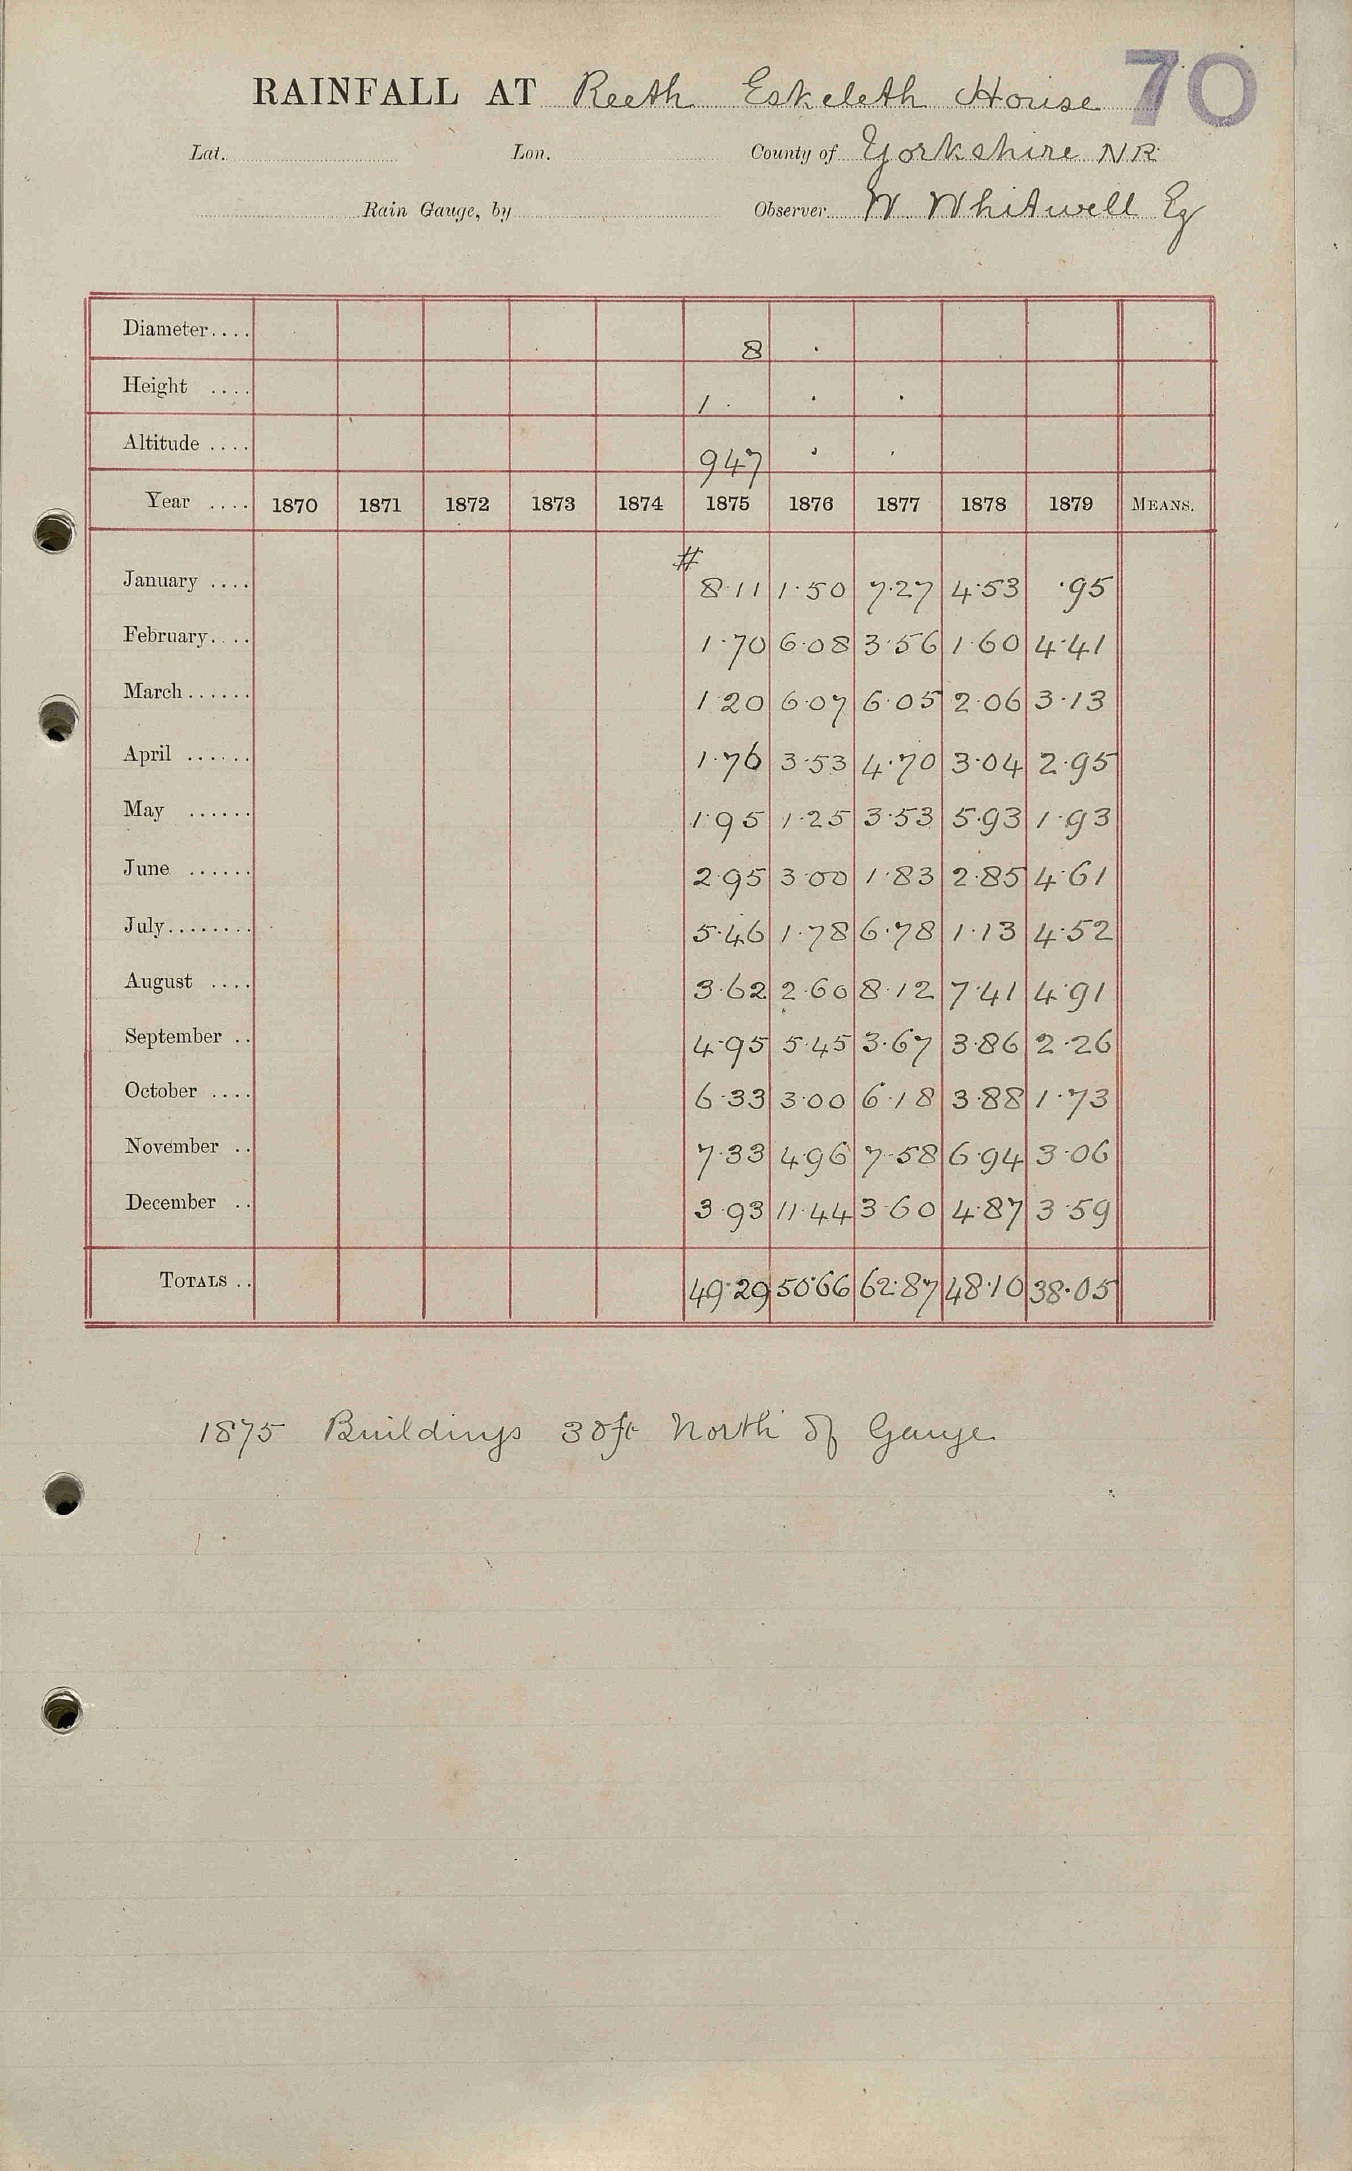 70
RAINFALL AT Reeth Eskeleth House
Lat. Lon. County of Yorkshire NR
Rain Gauge, by Observer W. Whitwell Eq
Diameter.... 8 .
Height .... 1 . . .
Altitude .... 947 . .
Year .... 1870 1871 1872 1873 1874 1875 1876 1877 1878 1879 MEANS.
#
January .... 8.11 1.50 7.27 4.53 .95
February.... 1.70 6.08 3.56 1.60 4.41
March...... 1.20 6.07 6.05 2.06 3.13
April ...... 1.76 3.53 4.70 3.04 2.95
May ...... 1.95 1.25 3.53 5.93 1.93
June ...... 2.95 3.00 1.83 2.85 4.61
July........ 5.46 1.78 6.78 1.13 4.52
August .... 3.62 2.60 8.12 7.41 4.91
September .. 4.95 5.45 3.67 3.86 2.26
October .... 6.33 3.00 6.18 3.88 1.73
November .. 7.33 4.96 7.58 6.94 3.06
December .. 3.93 11.44 3.60 4.87 3.59
TOTALS .. 49.29 50.66 62.87 48.10 38.05
1875 Buildings 30ft North of Gauge